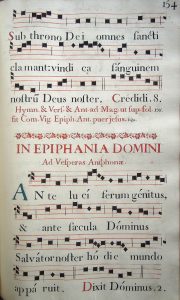 154
Sub throno Dei omnes sancti
clamant: vindica sanguinem
nostrũ Deus noster, Credidi. 8.
Hymn. & Vers. & Ant. ad Mag. ut sup. fol.
fit Com. Vig. Epiph. Ant. puer Jesus.
IN EPIPHANIA DOMINI
Ad Vesperas Antiphonæ.
Ante lucíferum génitus,
& ante sæcula Dóminus
Salvátor noster hódie mundo
appáruit. Dixit Dóminus. 2.